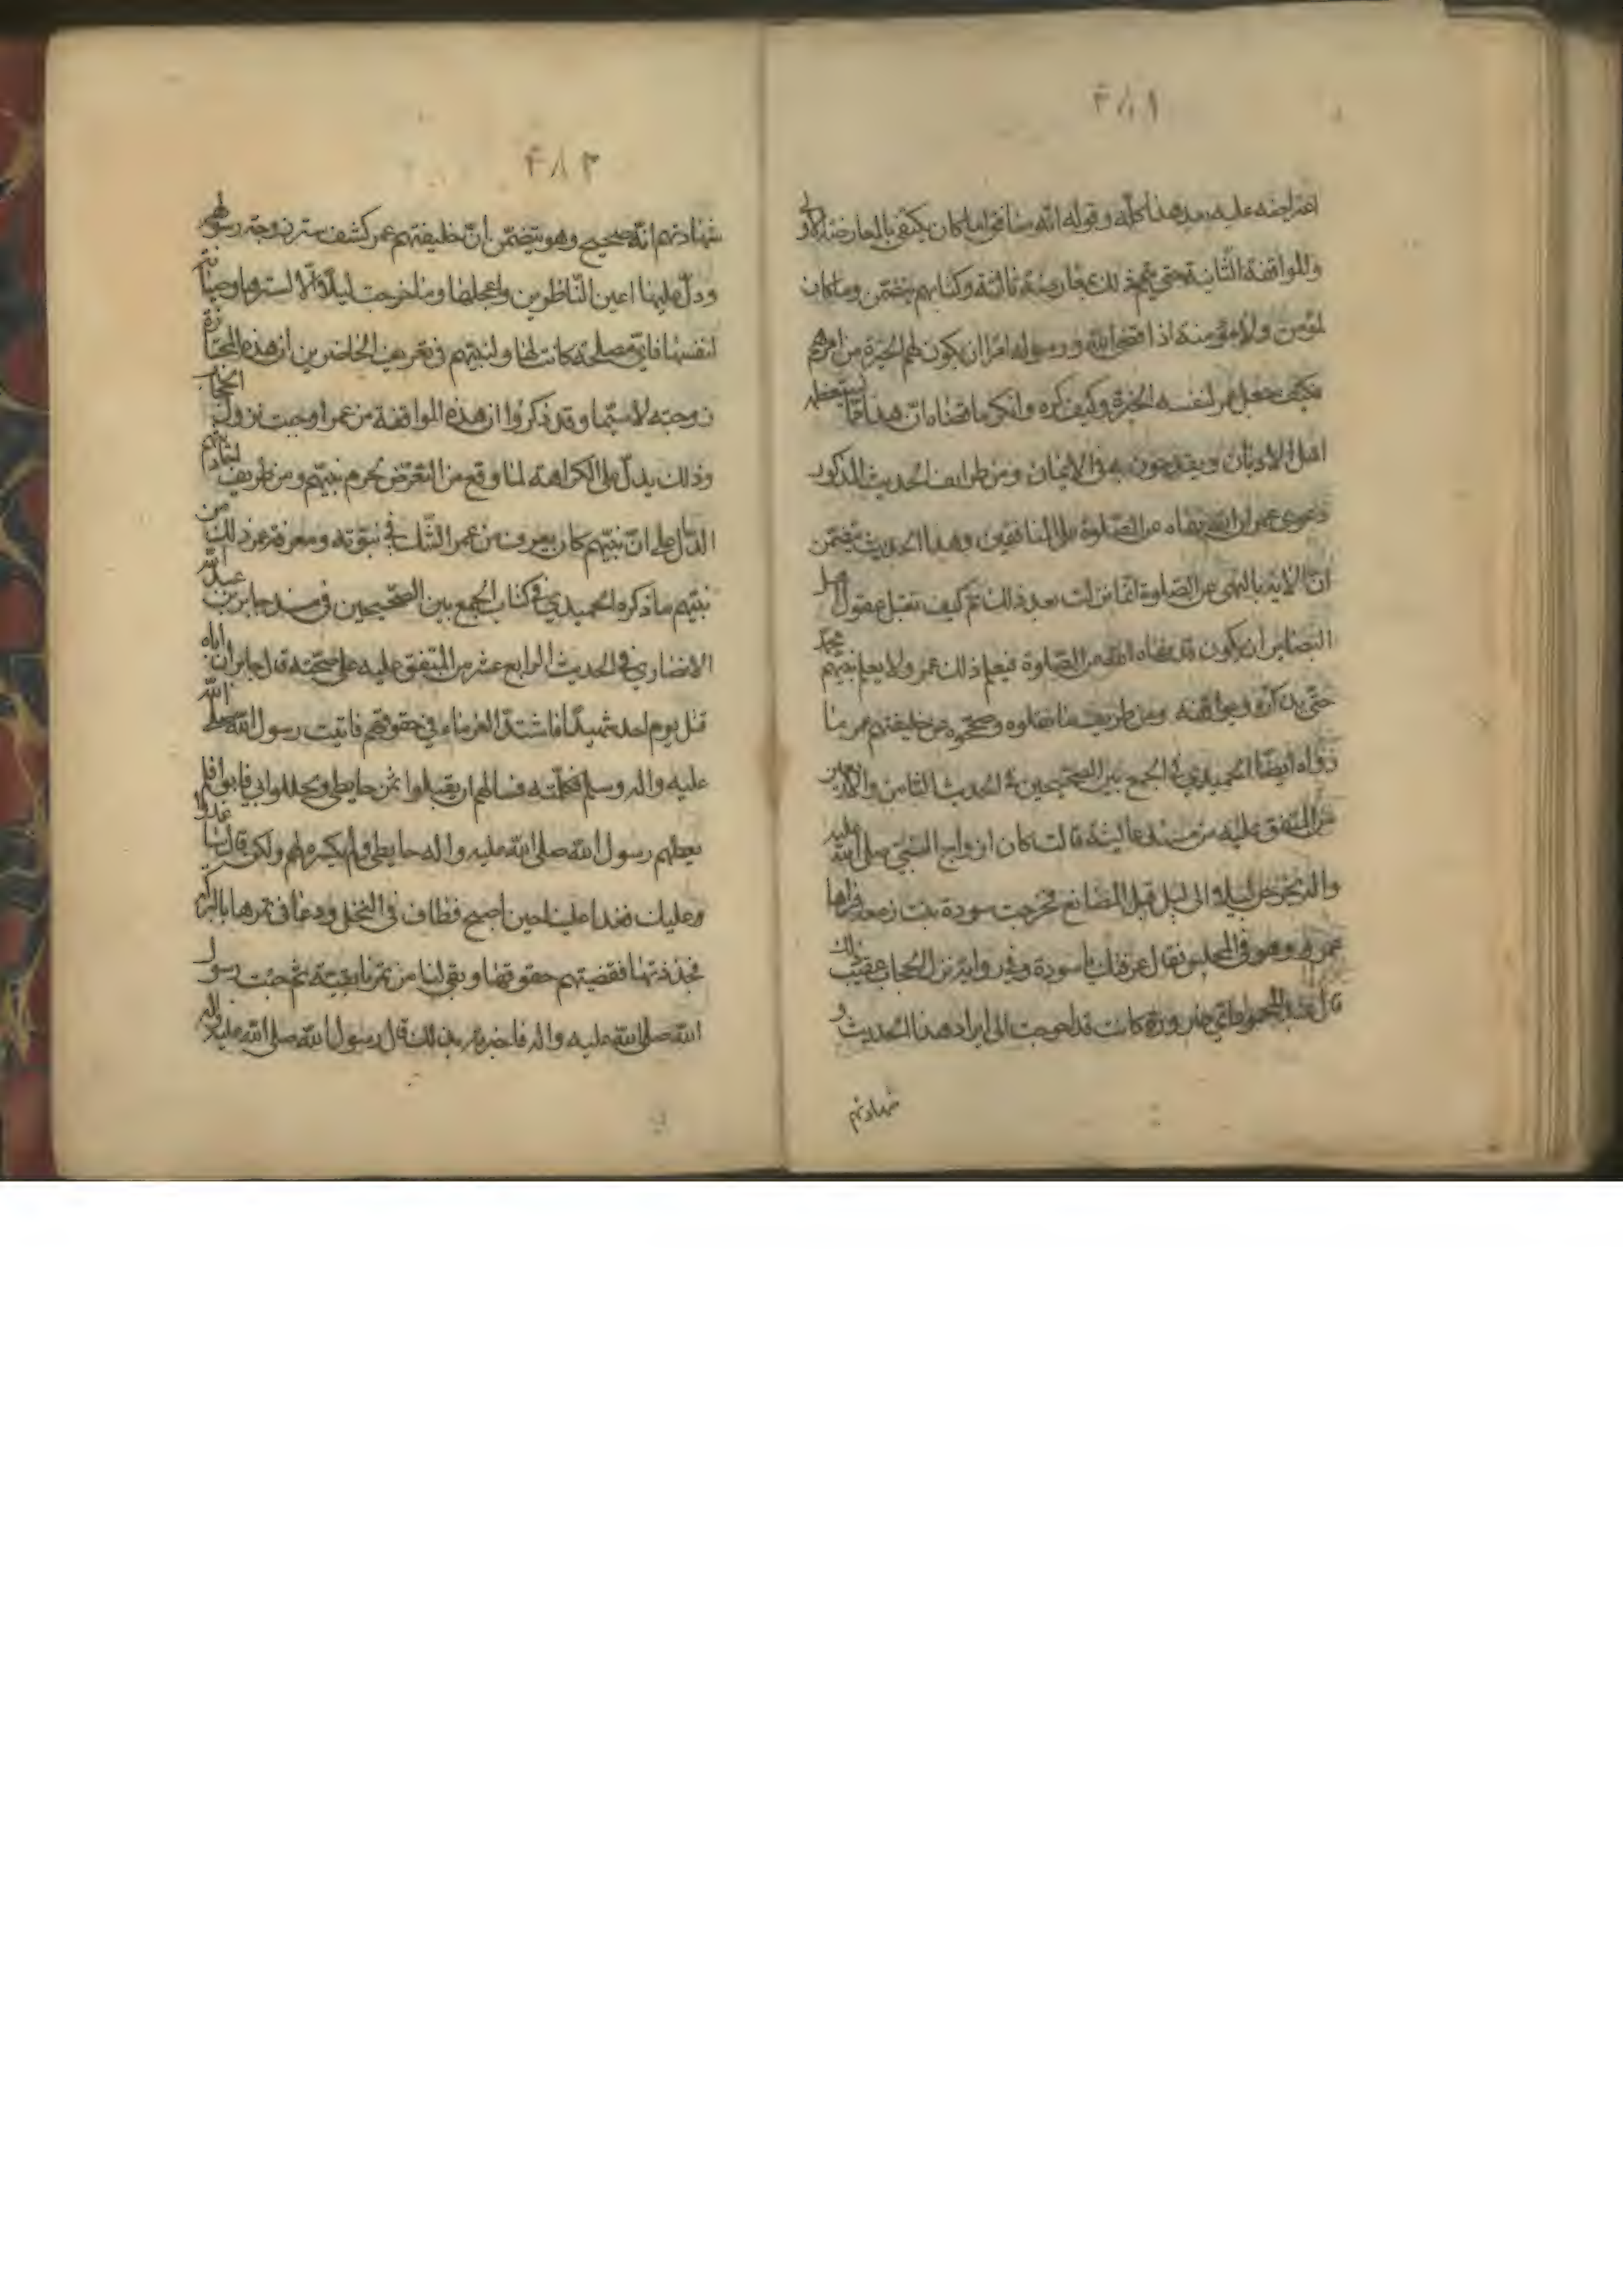 ٤٨١
اعتراضه عليه بعد هذا كله وقوله انه منافق اما كان يكتفى بالمعارضة الاولى
والموافقة الثانية حتى يتم ذلك بمعارضة ثالثة وكتابهم يتضمن وما كان
لمؤمن ولا مؤمنة اذا قضى الله ورسوله امرا ان يكون لهم الخيرة من امرهم
فكيف جعل عمر لنفسه الخيرة وكيف كره وانكر ما قضاه ان هذا مما يستعظمه
اهل الاديان ويقدحون به فى الايمان ومن طرايف الحديث المذكور
دعوى عمر ان الله نهاه عن الصلوة على المنافقين وهذا الحديث يتضمن
ان الاية بالنهى عن الصلوة انما نزلت بعد ذلك ثم كيف تقبل عقول اهل
البصاير ان يكون قد نهاه الله عن الصلوة فيعلم ذلك عمر ولا يعلم نبيهم محمد
حتى يذكره ومن طريف ما نقلوه وصححوه عن خليفتهم عمر ما
رواه ايضا الحميدي فى الجمع بين الصحيحين فى الحديث الثامن والاربعين
من المتفق عليه من مسند عايشة قالت كان ازواج النبي صلى الله عليه
واله يخرجن ليلا الى ليل قبل المصانع فخرجت سودة بنت زمعة فراها
عمر وهو فى المجلس فقال عرفتك يا سودة وفى رواية نزل الحجاب عقيب ذلك
قال عبد المحمود اي ضرورة كانت قد احوجت الى ايراد هذا الحديث و
شهادتهم
٤٨٢
شهادتهم انه صحيح وهو يتضمن ان خليفتهم عمر كشف ستر زوجة رسولهم
ودل عليها اعين الناظرين واخجلها وما خرجت ليلا الا لستر وصيانة
لنفسها فاي مصلحة كانت لها ولنبيهم فى تعريف الحاضرين ان هذه المجتازة
زوجته لا سيما وقد ذكروا ان هذه الموافقة من عمر اوجبت نزول الحجاب
وذلك يدل على الكراهة لما وقع من التعرض بحرم نبيهم ومن طريف
الدال على ان نبيهم كان يعرف من عمر الشك فى نبوته ومعرفة عمر ذلك من
نبيهم ما ذكره الحميدي فى كتاب الجمع بين الصحيحين فى مسند جابر بن عبد الله
الانصاري فى الحديث الرابع عشر من المتفق عليه على صحته قال جابر ان اباه
قتل يوم احد شهيدا فاشتد الغرماء في حقوقهم فاتيت رسول الله صلى الله
عليه واله وسلم فكلمته فسالهم ان يقبلوا ثمن حايطي ويحللوا ابي فابوا فلم
يعطهم رسول الله صلى الله عليه واله حايطي ولم يكسره لهم ولكن قال ساغدوا
عليك فغدا علينا حين اصبح فطاف فى النخل ودعا فى ثمرها بالبركة
فجذذتها فقضيتهم حقوقها وبقى لنا من ثمرها بقية ثم جئت رسول
الله صلى الله عليه واله فاخبرته بذلك فقال رسول الله صلى الله عليه واله